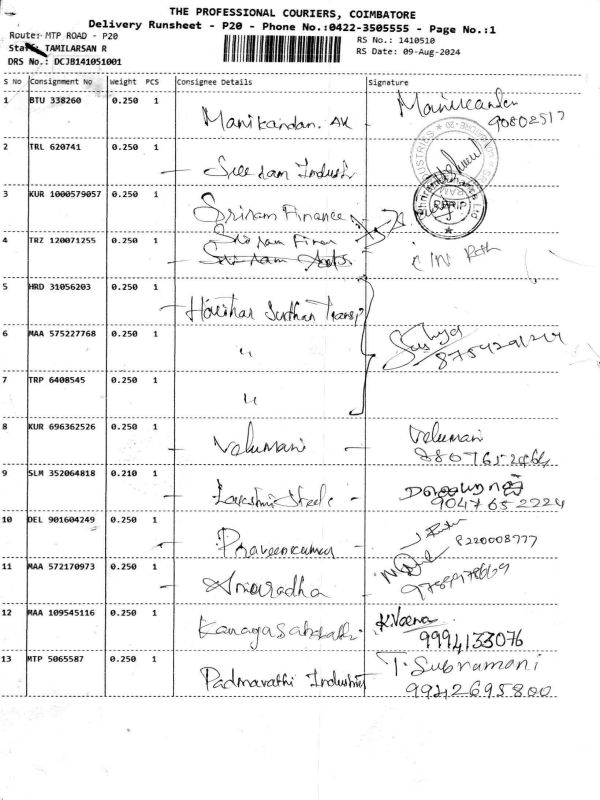 THE PROFESSIONAL COURIERS, COIMBATORE
Delivery Runsheet - P20 - Phone No.:0422-3505555 - Page No.:1
Route: MTP ROAD - P20
RS No.: 1410510
TAMILARSAN R
RS Date: 09-Aug-2024
DRS No.: DCJB141051001
S No Consignment No Weight PCS Consignee Details Signature
1 BTU 338260 0.250 1 Manikandan. AK
2 TRL 620741 0.250 1 Sree ram Industri
3 KUR 1000579057 0.250 1 Sriram Finance
4 TRZ 120071255 0.250 1
5 HRD 31056203 0.250 1
6 MAA 575227768 0.250 1 "
7 TRP 6408545 0.250 1 "
8 KUR 696362526 0.250 1 Velumani Velumani
9 SLM 352064818 0.210 1
9047652224
10 DEL 901604249 0.250 1 Praveenkumar
8220008777
11 MAA 572170973 0.250 1 Anuradha
12 MAA 109545116 0.250 1 K.Veena
9994133076
13 MTP 5065587 0.250 1 Padmavathi T. Subramani
9942695800